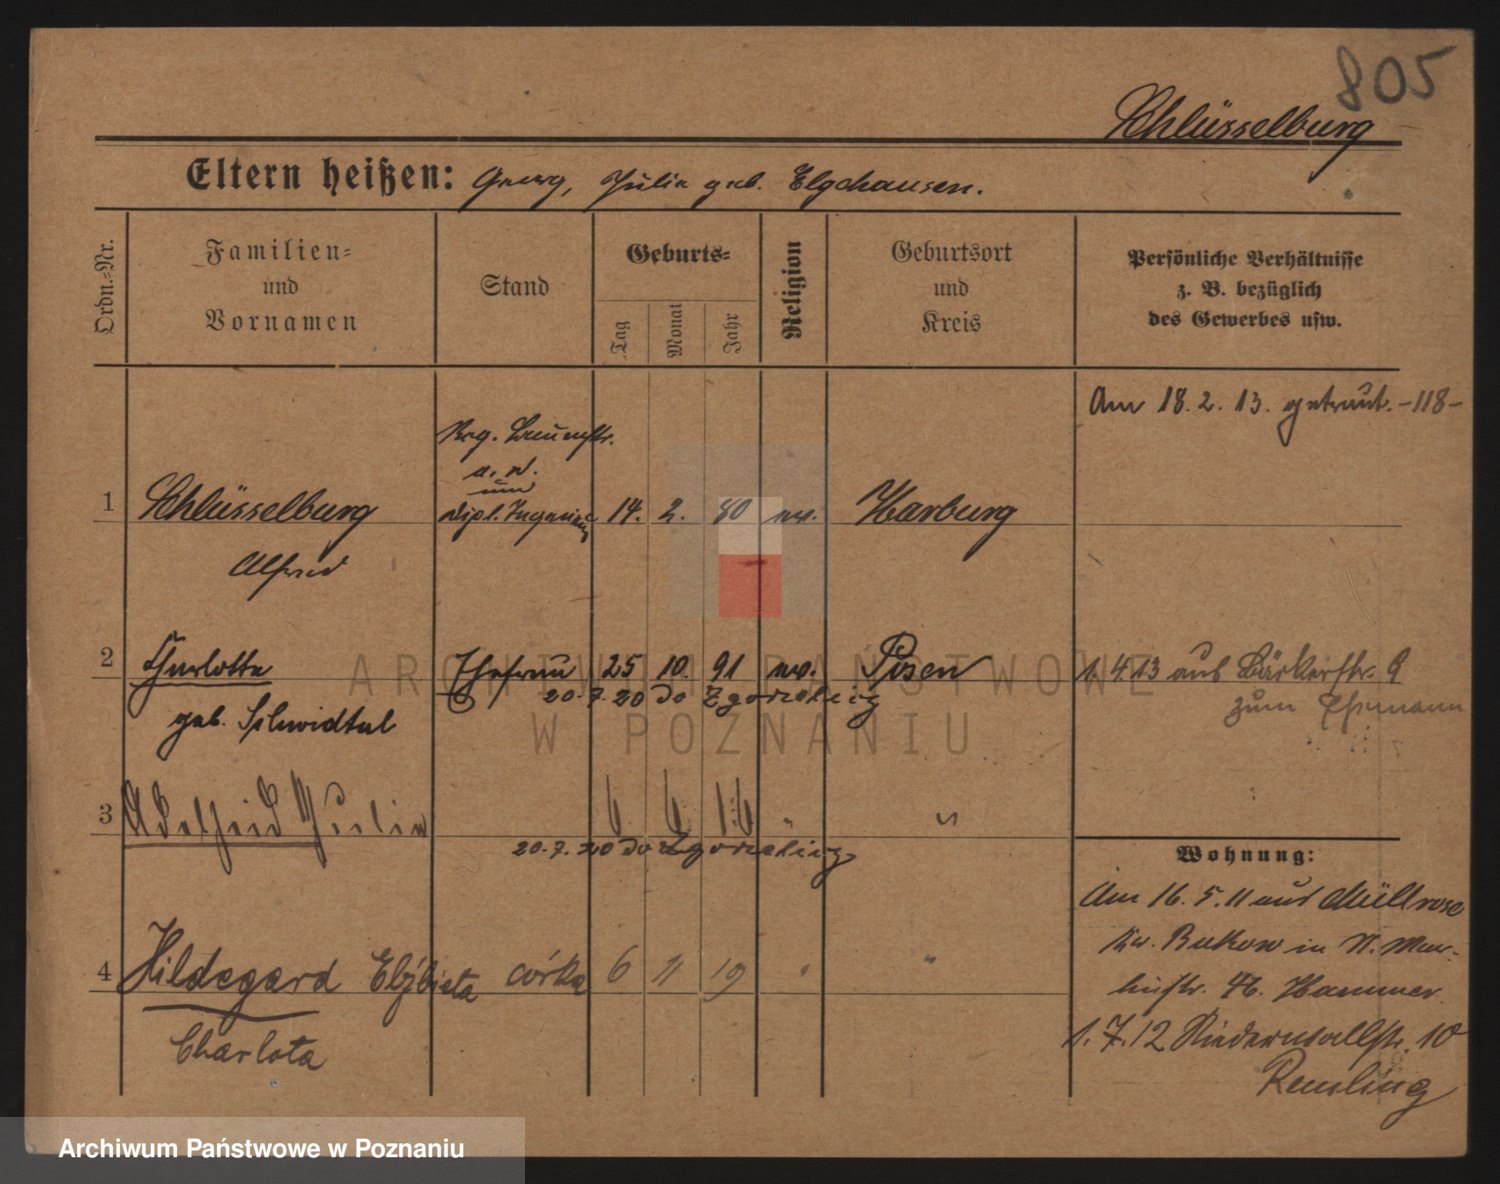 805
Schlüsselburg
Eltern heißen: Georg, Julie geb. Elgehausen.
Ordn.-Nr.
Familien-
und
Vornamen
Stand
Geburts-
Tag
Monat
Jahr
Religion
Geburtsort
und
Kreis
Persönliche Verhältnisse
z. B. bezüglich
des Gewerbes usw.
Am 18. 2. 13. getraut. -118-
Reg. Baumstr.
a. D.
und
1 Schlüsselburg Dipl. Ingenieur 14. 2. 80 ev. Harburg
Alfred
2 Charlotte Ehefrau 25 10. 91 ev. Posen 1. 4. 13 aus Bäckerstr. 9
20.7.20 do Zgorzelig zum Ehemann
geb. Schmidtal
3 Adelheid Julie 6 6 16 " "
20.7.20 do Zgorzelig
Wohnung:
Am 16. 5. 11 aus Müllrose
Kr. in N.
4 Hildegard Elżbieta córka 6 11 19 " "
Charlota
Hammer
1. 7. 12 Niederwallstr. 10
ARCHIWUM PAŃSTWOWE
W POZNANIU
Archiwum Państwowe w Poznaniu